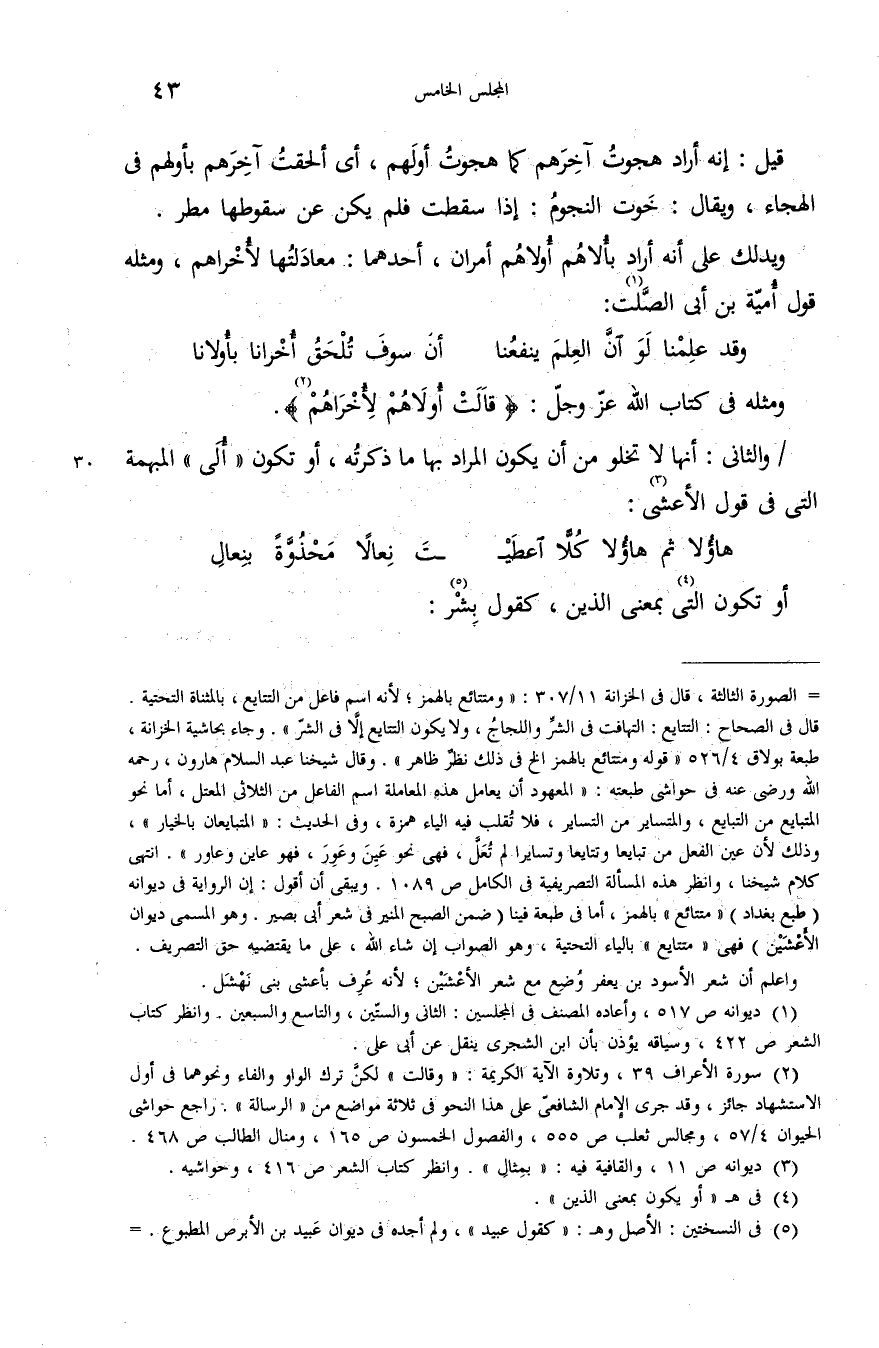 المجلس الخامس ٤٣
قيل : إنه أراد هجوتُ آخِرَهم كما هجوتُ أولَهم ، أى ألحقتُ آخِرَهم بأولهم فى
الهجاء ، ويقال : خَوت النجومُ : إذا سقطت فلم يكن عن سقوطها مطر .
ويدلك على أنه أراد بأُلاهُم أُولاهُم أمران ، أحدهما : معادَلتُها لأُخْراهم ، ومثله
قول أُميّة بن أبى الصَّلت(١):
وقد علِمْنا لَوَ آنَّ العِلمَ ينفعُنا أنْ سوفَ تُلْحَقُ أُخْرانا بأُولانا
ومثله فى كتاب الله عزّ وجلّ : ﴿ قَالَتْ أُولَاهُمْ لِأُخْرَاهُمْ(٢) ﴾.
/ والثانى : أنها لا تخلو من أن يكون المراد بها ما ذكرتُه ، أو تكون « أُلَى » المبهمة ٣٠
التى فى قول الأعشى(٣) :
هاؤُلا ثم هاؤُلا كُلًّا آعطَيْـ ـتَ نِعالًا مَحْذُوَّةً بنِعالِ
أو تكون التى(٤) بمعنى الذين ، كقول بِشْر(٥) :
= الصورة الثالثة ، قال فى الخزانة ٣٠٧/١١ : « ومتتائع بالهمز ؛ لأنه اسم فاعل من التتايع ، بالمثناة التحتية .
قال فى الصحاح : التتايع : التهافت فى الشرِّ واللجاجُ ، ولا يكون التتايع إلَّا فى الشرّ » . وجاء بحاشية الخزانة ،
طبعة بولاق ٥٢٦/٤ « قوله ومتتائع بالهمز الخ فى ذلك نظرٌ ظاهر » . وقال شيخنا عبد السلام هارون ، رحمه
الله ورضى عنه فى حواشى طبعته : « المعهود أن يعامل هذه المعاملة اسم الفاعل من الثلاثى المعتل ، أما نحو
المتبايع من التبايع ، والمتساير من التساير ، فلا تُقلب فيه الياء همزة ، وفى الحديث : « المتبايعان بالخيار » ،
وذلك لأن عين الفعل من تبايعا وتتايعا وتسايرا لم تُعَلَّ ، فهى نحو عَيِنَ وعَوِرَ ، فهو عاين وعاور » . انتهى
كلام شيخنا ، وانظر هذه المسألة التصريفية فى الكامل ص ١٠٨٩ . ويبقى أن أقول : إن الرواية فى ديوانه
( طبع بغداد ) « متتائع » بالهمز ، أما فى طبعة فينا ( ضمن الصبح المنير فى شعر أبى بصير . وهو المسمى ديوان
الأَعْشَيْن ) فهى « متتايع » بالياء التحتية ، وهو الصواب إن شاء الله ، على ما يقتضيه حق التصريف .
واعلم أن شعر الأسود بن يعفر وُضِع مع شعر الأعْشَيْن ؛ لأنه عُرِف بأعشى بنى نَهْشَل .
(١) ديوانه ص ٥١٧ ، وأعاده المصنف فى المجلسين : الثانى والستّين ، والتاسع والسبعين . وانظر كتاب
الشعر ص ٤٢٢ ، وسياقه يؤذن بأن ابن الشجرى ينقل عن أبى على .
(٢) سورة الأعراف ٣٩ ، وتلاوة الآية الكريمة : « وقالت » لكنَّ ترك الواو والفاء ونحوهما فى أول
الاستشهاد جائز ، وقد جرى الإمام الشافعىّ على هذا النحو فى ثلاثة مواضع من « الرسالة » . راجع حواشى
الحيوان ٥٧/٤ ، ومجالس ثعلب ص ٥٥٥ ، والفصول الخمسون ص ١٦٥ ، ومنال الطالب ص ٤٦٨ .
(٣) ديوانه ص ١١ ، والقافية فيه : « بمِثالِ » . وانظر كتاب الشعر ص ٤١٦ ، وحواشيه .
(٤) فى هـ « أو يكون بمعنى الذين » .
(٥) فى النسختين : الأصل وهـ : « كقول عبيد » ، ولم أجده فى ديوان عَبيد بن الأبرص المطبوع . =